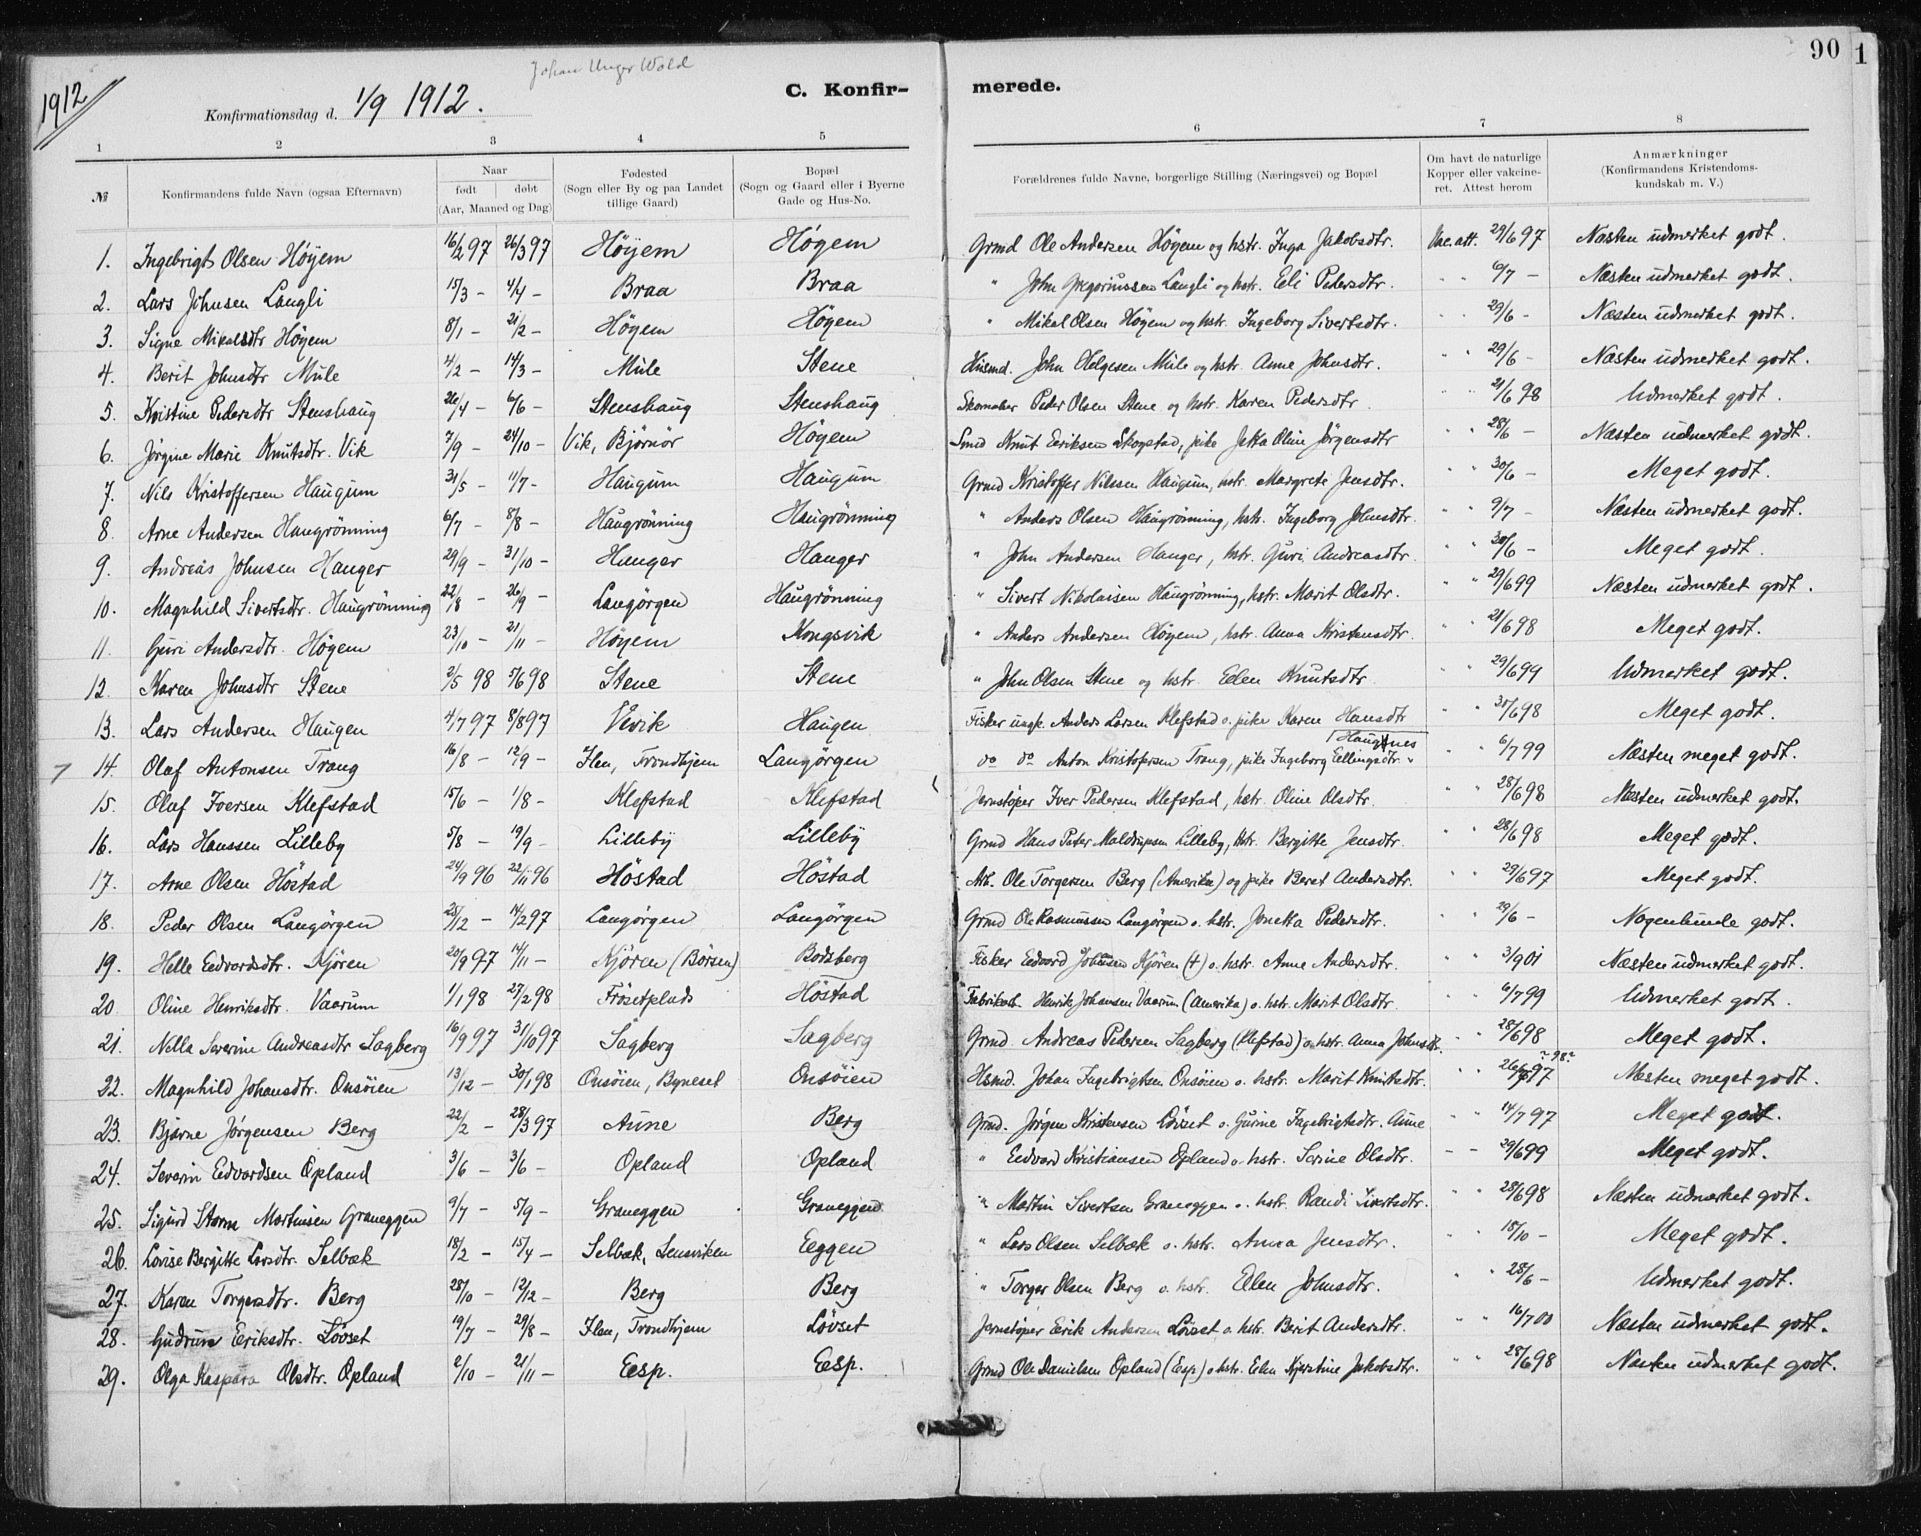 90 1
Johan Unger Wold
1912
Konfirmationsdag d. 1/9 1912.
C. Konfir- merede.
1 2 3 4 5 6 7 8
№ Konfirmandens fulde Navn (ogsaa Efternavn) Naar født døbt (Aar, Maaned og Dag) Fødested (Sogn eller By og paa Landet tillige Gaard) Bopæl (Sogn og Gaard eller i Byerne Gade og Hus-No. Forældrenes fulde Navne, borgerlige Stilling (Næringsvei) og Bopæl Om havt de naturlige Kopper eller vakcineret. Attest herom Anmærkninger (Konfirmandens Kristendomskundskab m. V.)
1. Ingebrigt Olsen Höyem 16/2 97 26/3 97 Höyem Höyem Grmd Ole Andersen Höyem og hstr. Inga Jakobsdtr. Vac. att. 29/6 97 Næsten udmerket godt.
2. Lars Johnsen Langli 15/3 - 4/4 - Braa Braa " John Gregoriussen Langli og hstr. Eli Pedersdtr. " " 6/7 - Næsten udmerket godt.
3. Signe Mikalsdtr Höyem 8/1 - 21/2 - Höyem Höyem " Mikal Olsen Höyem og hstr. Ingeborg Sivertsdtr. " " 29/6 - Næsten udmerket godt.
4. Berit Johnsdtr Mule 4/2 - 14/3 - Mule Stene Husmd. John Helgesen Mule og hstr. Anne Johnsdtr. " " 29/6 - Næsten udmerket godt.
5. Kristine Pedersdtr Stenshaug 26/4 - 6/6 - Stenshaug Stenshaug Skomaker Peder Olsen Stene og hstr. Karen Pedersdtr " " 21/6 98 Udmerket godt.
6. Jørgine Marie Knutsdtr. Vik 7/9 - 24/10 - Vik, Bjørnør Höyem Smd Knut Eriksen Skogstad, pike Jetta Oline Jörgensdtr " " 28/6 - Næsten udmerket godt.
7. Nils Kristoffersen Haugum 31/5 - 11/7 - Haugum Haugum Grmd Kristoffer Nilssen Haugum, hstr. Margrete Jensdtr. " " 30/6 - Meget godt.
8. Arne Andersen Haugrönning 6/7 - 8/8 - Haugrönning Haugrönning " Anders Olsen Haugrönning, hstr. Ingeborg Johnsdtr. " " 9/7 - Næsten udmerket godt.
9. Andreas Johnsen Hanger 29/9 - 31/10 - Hanger Hanger " John Andersen Hanger, hstr. Guri Andreasdtr. " " 30/6 - Meget godt.
10. Magnhild Sivertsdtr. Haugrönning 22/8 - 26/9 - Langörgen Haugrönning " Sivert Nikolaisen Haugrönning, hstr. Marit Olsdtr. " " 29/6 99 Næsten udmerket godt.
11. Guri Andersdtr. Höyem 23/10 - 21/11 - Höyem Kongsvik " Anders Andersen Höyem, hstr. Anna Kristensdtr. " " 21/6 98 Meget godt.
12. Karen Johnsdtr Stene 2/5 98 5/6 98 Stene Stene " John Olsen Stene og hstr. Eelen Knutsdtr. " " 29/6 99 Udmerket godt.
13. Lars Andersen Haugen 4/7 97 8/8 97 Vevik Haugen Fisker ungk. Anders Larsen Klefstad o. pike Karen Hansdtr Haugnes " " 30/6 98 Meget godt.
14. Olaf Antonsen Trang 16/8 - 12/9 - Ilen, Trondhjem Langörgen do do Anton Kristofersen Trang, pike Ingeborg Eellingsdtr. " " 6/7 99 Næsten meget godt.
15. Olaf Iversen Klefstad 15/6 - 1/8 - Klefstad Klefstad Jernstöper Iver Pedersen Klefstad, hstr. Oline Olsdtr. " " 28/6 98 Næsten udmerket godt.
16. Lars Hanssen Lilleby 5/8 - 19/9 - Lilleby Lilleby Grmd Hans Peter Lilleby, hstr. Bergitte Jensdtr. " " 28/6 98 Meget godt.
17. Arne Olsen Höstad 24/9 96 22/11 96 Höstad Höstad Arb. Ole Torgersen Berg (Amerika) og pike Beret Andersdtr. " " 29/6 97 Meget godt.
18. Peder Olsen Langörgen 25/12 - 14/2 97 Langörgen Langörgen Grmd Ole Rasmussen Langörgen o. hstr. Jonetta Pedersdtr. " " 29/6 - Nogenlunde godt.
19. Helle Eedvardsdtr. Kjören 20/9 97 14/11 - Kjören (Börsen) Bodsberg Fisker Eedvard Johnsen Kjören (+) o. hstr. Anne Andersdtr. " " 3/9 01 Næsten udmerket godt.
20 Oline Henriksdtr. Vaarum 1/1 98 27/2 98 Frösetplads Höstad Fabrikarb. Henrik Johansen Vaarum (Amerika) o. hstr. Marit Olsdtr. " " 6/7 99 Udmerket godt.
21. Nella Severine Andreasdtr Sagberg 16/9 97 31/10 97 Sagberg Sagberg Grmd. Andreas Pedersen Sagberg (Klefstad) o. hstr. Anna Johnsdtr. " " 28/6 98 Meget godt.
22. Magnhild Johansdtr. Onsöien 13/12 - 30/1 98 Onsöien, Byneset Onsöien Hsmd. Johan Ingebrigtsen Onsöien o. hstr. Marit Knutsdtr. " " 26/6 97 ?98? Næsten meget godt.
23. Bjarne Jørgensen Berg 22/2 - 28/3 97 Aune Berg Grmd. Jørgen Kristensen Lövset o. Gurine Ingebrigtsdtr. Aune " " 14/7 97 Meget godt.
24. Severin Eedvardsen Opland 3/6 - 3/6 - Opland Opland " Eedvard Kristiansen Opland o. hstr. Serine Olsdtr. - - 29/6 99 Meget godt.
25. Sigurd Storm Martinsen Graneggen 9/7 - 5/9 - Graneggen Graneggen " Martin Sivertsen Graneggen o. hstr. Randi Sivertsdtr. " " 28/6 98 Næsten udmerket godt.
26. Lovise Bergitte Larsdtr. Selbæk 18/2 - 15/4 - Selbæk, Lensviken Eeggen " Lars Olsen Selbæk o. hstr. Anna Jensdtr. " " 18/10 - Meget godt.
27. Karen Torgersdtr. Berg 28/10 - 12/12 - Berg Berg " Torger Olsen Berg o. hstr. Ellen Johnsdtr. " " 28/6 - Udmerket godt.
28. Gudrun Eeriksdtr. Lövset 19/7 - 29/8 - Ilen, Trondhjem Lövset Jernstöper Eerik Andersen Lövset o. hstr. Berit Andersdtr. " " 16/7 00 Næsten udmerket godt.
29. Olga Kaspara Olsdtr. Opland 2/10 - 21/11 - Eesp. Eesp. Grmd Ole Danielsen Opland (Eesp) o hstr. Eelen Kjerstine Jakobsdtr. " " 28/6 98 Næsten udmerket godt.